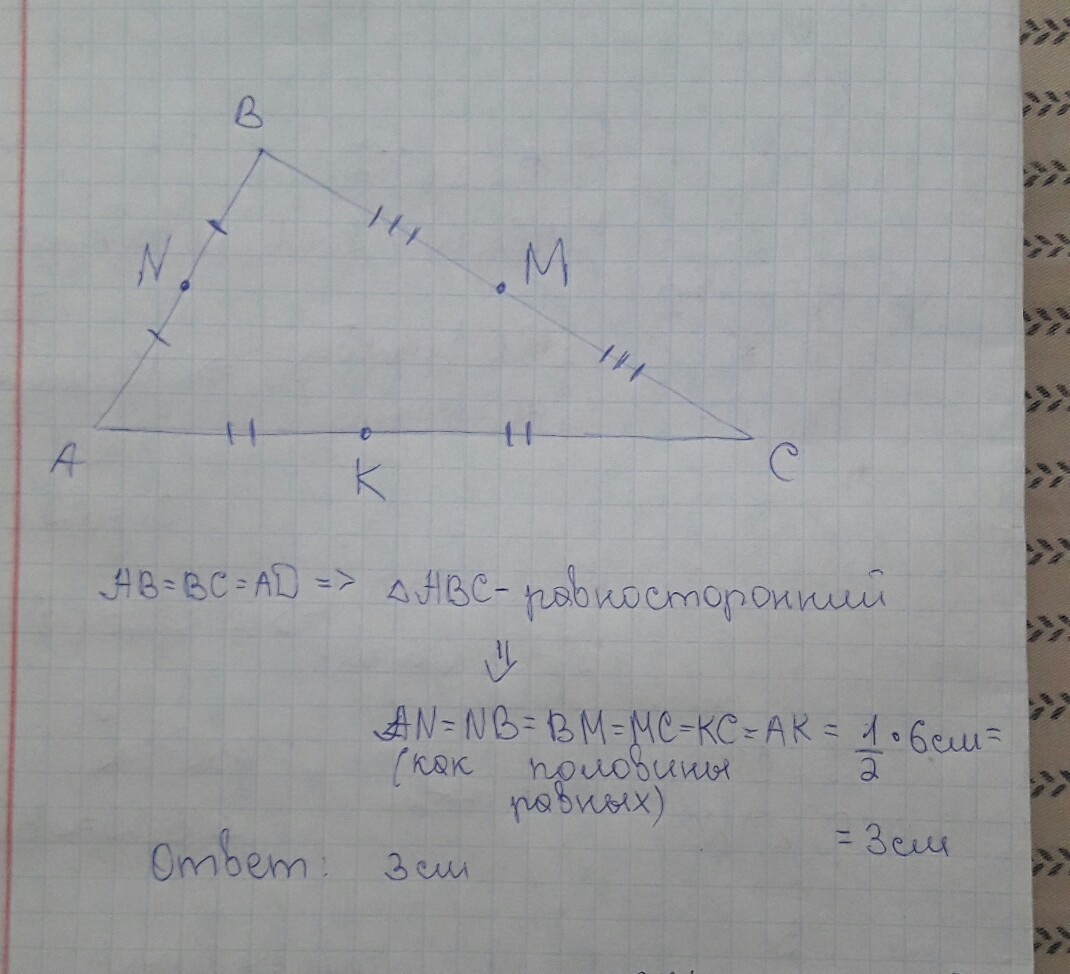 B
N
M
A
K
C
AB=BC=AD => △ABC- равносторонний
⇓
AN=NB=BM=MC=KC=AK = 1/2 • 6см=
(как половины
равных)
= 3см
Ответ: 3см